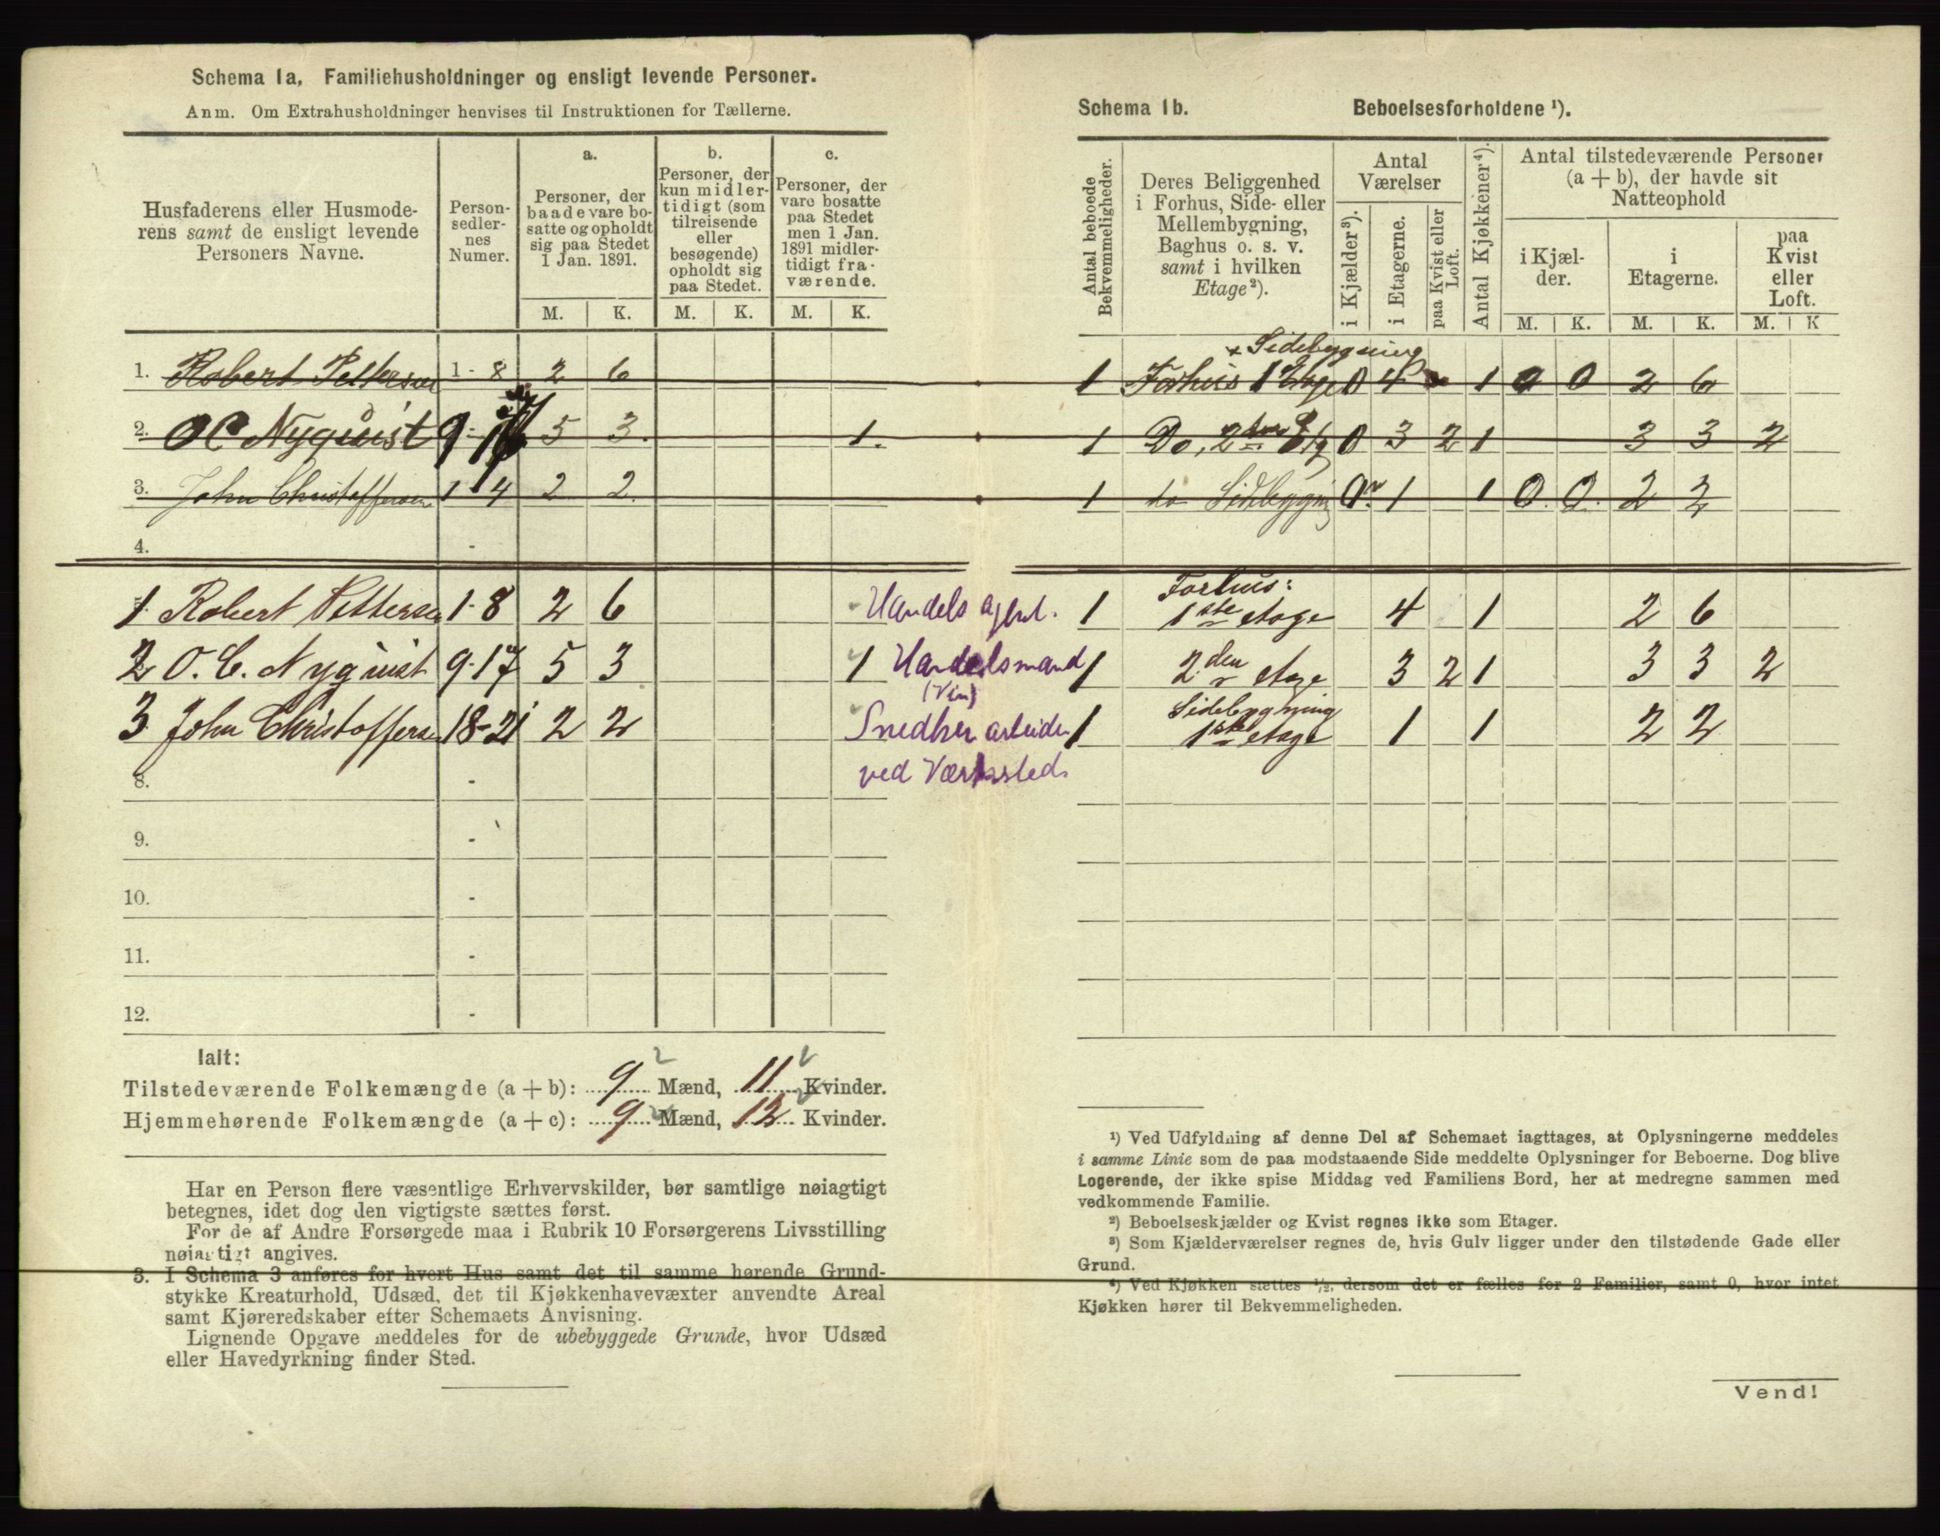 Schema 1a, Familiehusholdninger og ensligt levende Personer.
Anm. Om Extrahusholdninger henvises til Instruktionen for Tællerne.
Husfaderens eller Husmode-
rens samt de ensligt levende
Personers Navne.
Person-
sedler-
nes
Numer.
a.
Personer, der
baade vare bo-
satte og opholdt
sig paa Stedet
1 Jan. 1891.
b.
Personer, der
kun midler-
tidigt (som
tilreisende
eller
besøgende)
opholdt sig
paa Stedet.
c.
Personer, der
vare bosatte
paa Stedet
men 1 Jan.
1891 midler-
tidigt fra-
værende.
M. K. M. K. M. K.
1. Robert Pettersen 1-8 2 6
2. O C Nyquist 9- 5 3. 1.
3. John Christoffersen 1-4 2 2
4. -
1 Robert Pettersen 1-8 2 6 Handels agent.
2 O. C. Nyquist 9-17 5 3 1 Handelsmand
(Vin)
3 John Christoffersen 18-21 2 2 Snedker arbeider
8. - ved Værksted
9. -
10. -
11. -
12. -
Ialt:
Tilstedeværende Folkemængde (a + b): 9 Mænd, 11 Kvinder.
Hjemmehørende Folkemængde (a + c): 9 Mænd, 12 Kvinder.
Har en Person flere væsentlige Erhvervskilder, bør samtlige nøiagtigt
betegnes, idet dog den vigtigste sættes først.
For de af Andre Forsørgede maa i Rubrik 10 Forsørgerens Livsstilling
nøiagtigt angives.
3. I Schema 3 anføres for hvert Hus samt det til samme hørende Grund-
stykke Kreaturhold, Udsæd, det til Kjøkkenhavevæxter anvendte Areal
samt Kjøreredskaber efter Schemaets Anvisning.
Lignende Opgave meddeles for de ubebyggede Grunde, hvor Udsæd
eller Havedyrkning finder Sted.
Schema 1b. Beboelsesforholdene ¹).
Antal beboede
Bekvemmeligheder.
Deres Beliggenhed
i Forhus, Side- eller
Mellembygning,
Baghus o. s. v.
samt i hvilken
Etage²).
Antal
Værelser
i Kjælder³).
i Etagerne.
paa Kvist eller
Loft.
Antal Kjøkkener⁴).
Antal tilstedeværende Personer
(a + b), der havde sit
Natteophold
i Kjæl-
der.
i
Etagerne.
paa
Kvist
eller
Loft.
M. K. M. K. M. K
+ Sidebygning
1 Forhus 1 Etage 0 4 1 0 0 2 6
1 Do, 2den Etg 0 3 2 1 3 3 2
1 do Sidebygning 0 1 1 0 0. 2 2
Forhus:
1 1ste etage 4 1 2 6
1 2den etage 3 2 1 3 3 2
Sidebygning
1 1ste etage 1 1 2 2
¹) Ved Udfyldning af denne Del af Schemaet iagttages, at Oplysningerne meddeles
i samme Linie som de paa modstaaende Side meddelte Oplysninger for Beboerne. Dog blive
Logerende, der ikke spise Middag ved Familiens Bord, her at medregne sammen med
vedkommende Familie.
²) Beboelseskjælder og Kvist regnes ikke som Etager.
³) Som Kjælderværelser regnes de, hvis Gulv ligger under den tilstødende Gade eller
Grund.
⁴) Ved Kjøkken sættes ¹/₂, dersom det er fælles for 2 Familier, samt 0, hvor intet
Kjøkken hører til Bekvemmeligheden.
Vend!